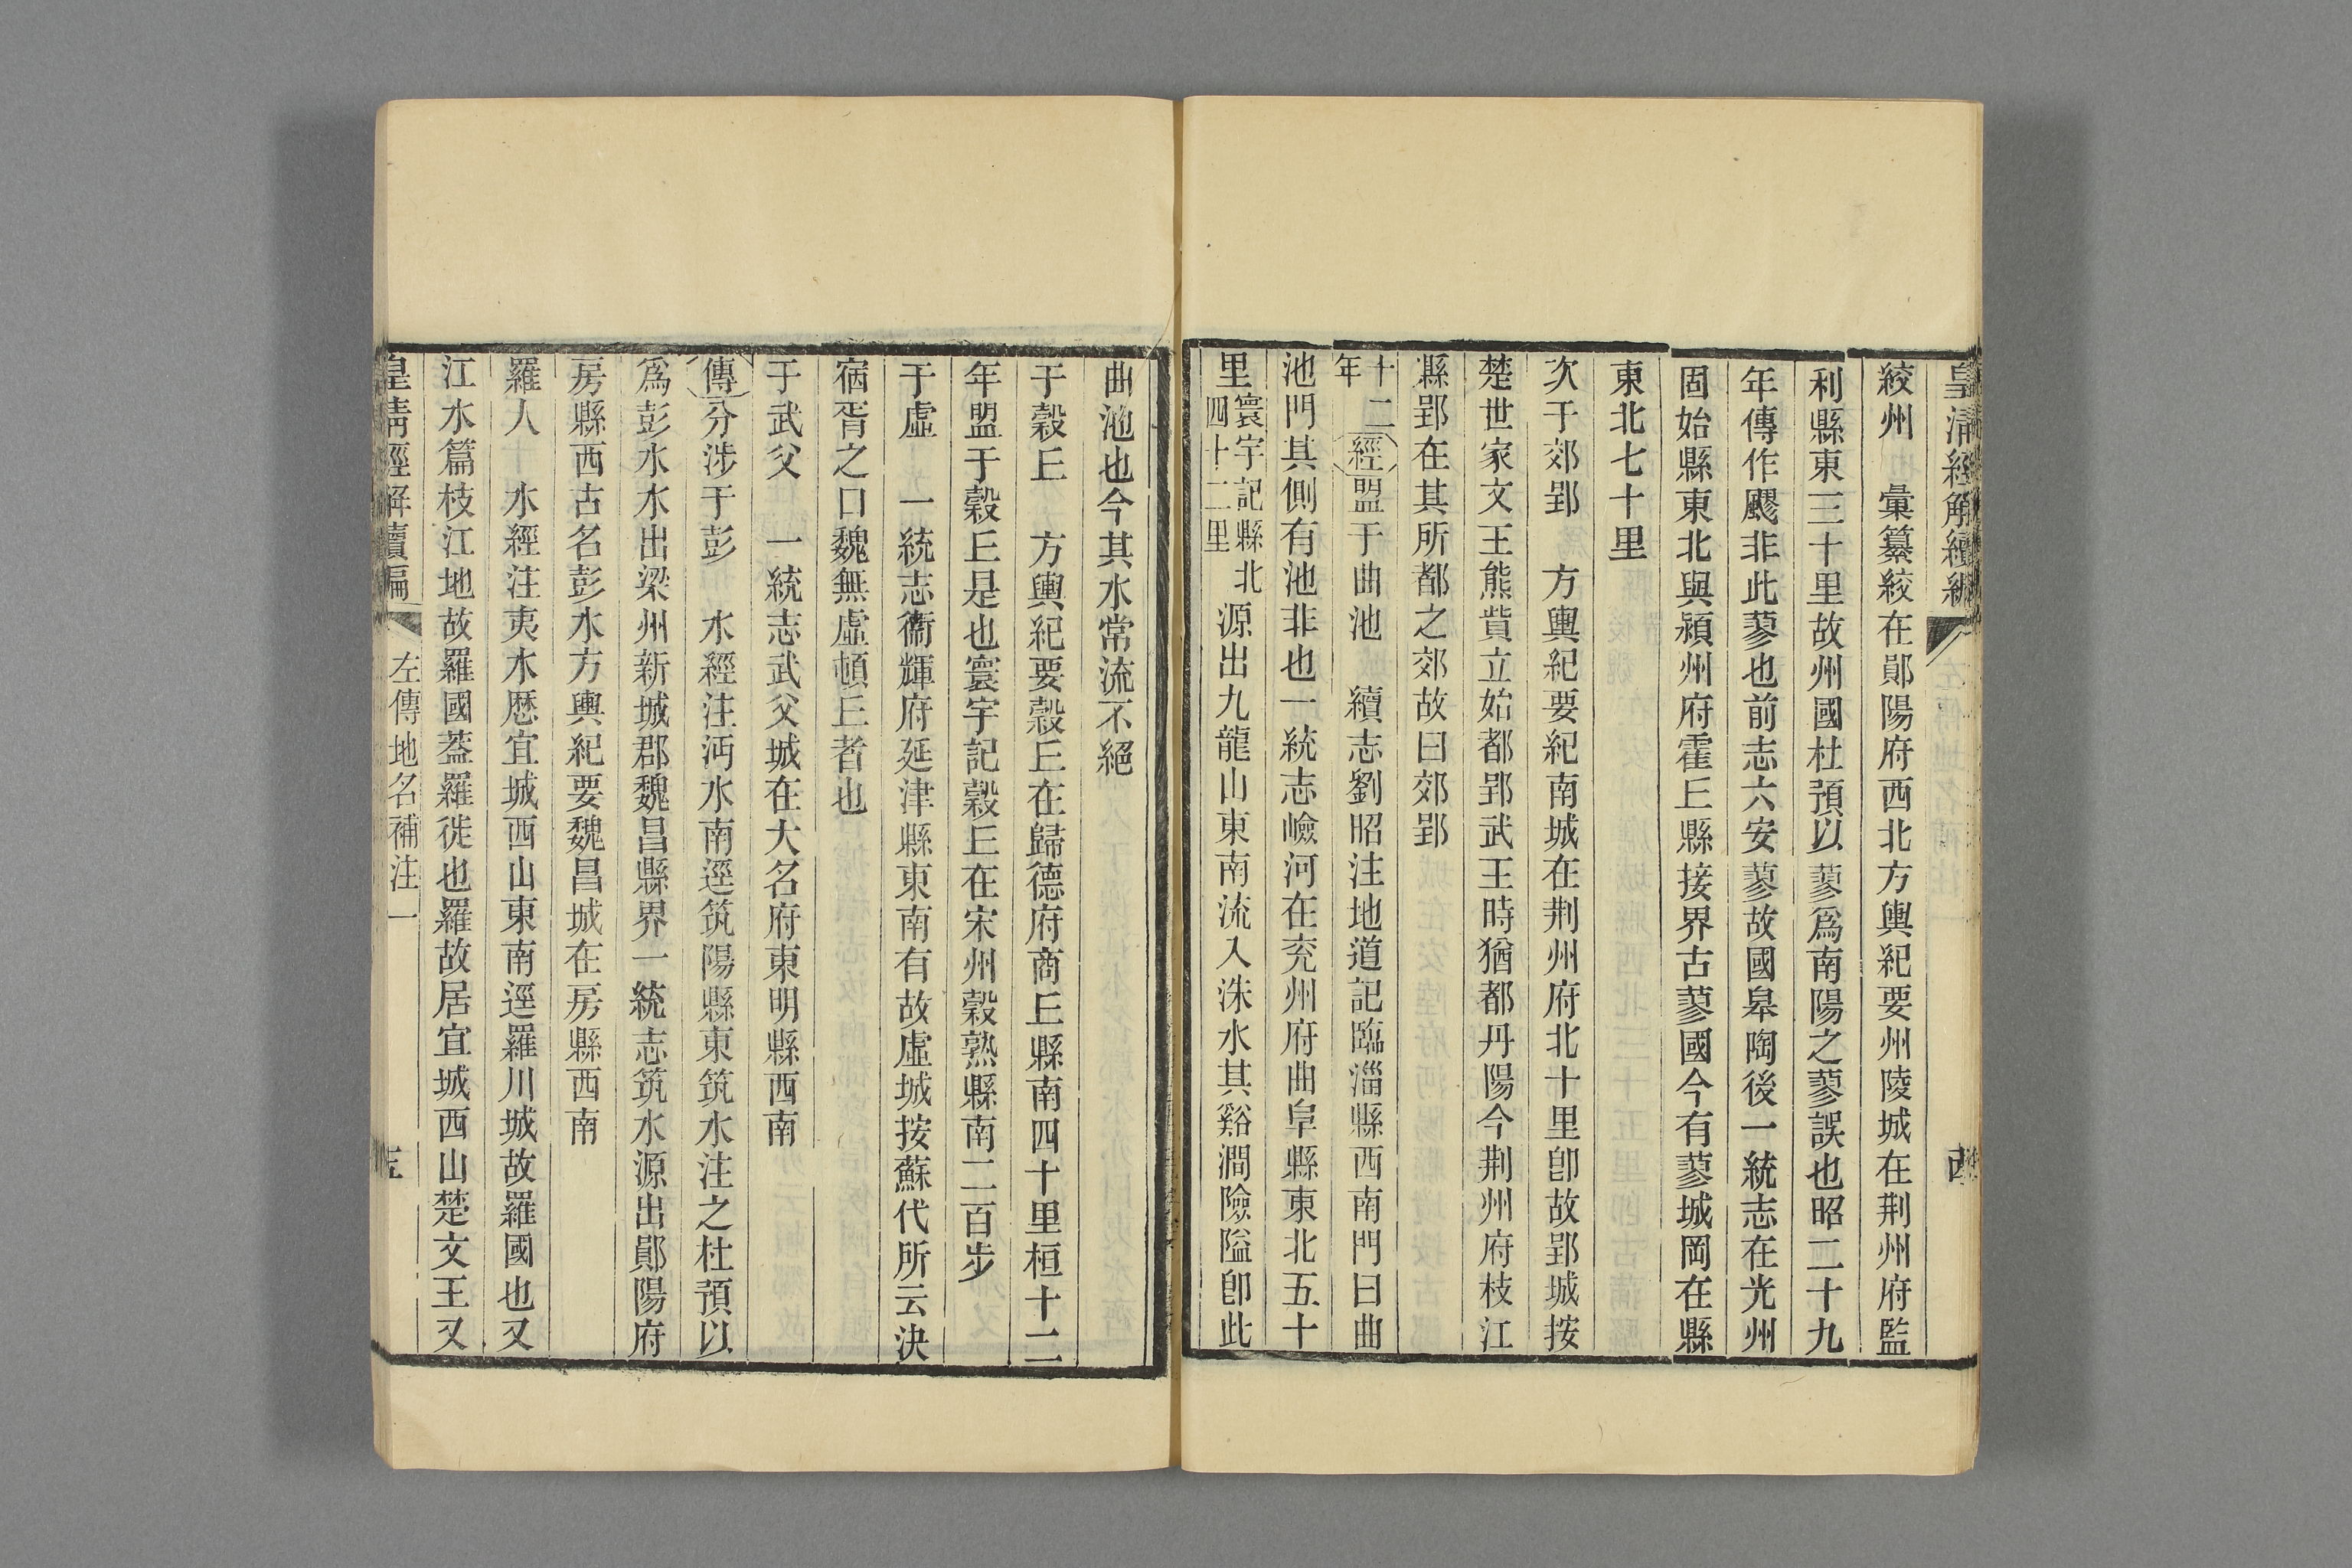 皇清經解續編
絞州　彙纂絞在鄖陽府西北方輿紀要州陵城在荆州府監
利縣東三十里故州國杜預以蓼爲南陽之蓼誤也昭二十九
年傳作飂非此蓼也前志六安蓼故國皋陶後一統志在光州
固始縣東北與潁州府霍丘縣接界古蓼國今有蓼城岡在縣
東北七十里
次于郊郢　方輿紀要紀南城在荆州府北十里卽故郢城按
楚世家文王熊貲立始都郢武王時猶都丹陽今荆州府枝江
縣郢在其所都之郊故曰郊郢
十二年經盟于曲池　續志劉昭注地道記臨淄縣西南門曰曲
池門其側有池非也一統志嶮河在兖州府曲阜縣東北五十
里寰宇記縣北四十二里源出九龍山東南流入洙水其谿澗險隘卽此
曲池也今其水常流不絕
于穀丘　方輿紀要穀丘在歸德府商丘縣南四十里桓十二
年盟于穀丘是也寰宇記穀丘在宋州穀熟縣南二百步
于虛　一統志衞輝府延津縣東南有故虛城按蘇代所云決
宿胥之口魏無虛頓丘者也
于武父　一統志武父城在大名府東明縣西南
傳分涉于彭　水經注沔水南逕筑陽縣東筑水注之杜預以
爲彭水水出梁州新城郡魏昌縣界一統志筑水源出鄖陽府
房縣西古名彭水方輿紀要魏昌城在房縣西南
羅人　水經注夷水歷宜城西山東南逕羅川城故羅國也又
江水篇枝江地故羅國蓋羅徙也羅故居宜城西山楚文王又
皇清經解續編　左傳地名補注一